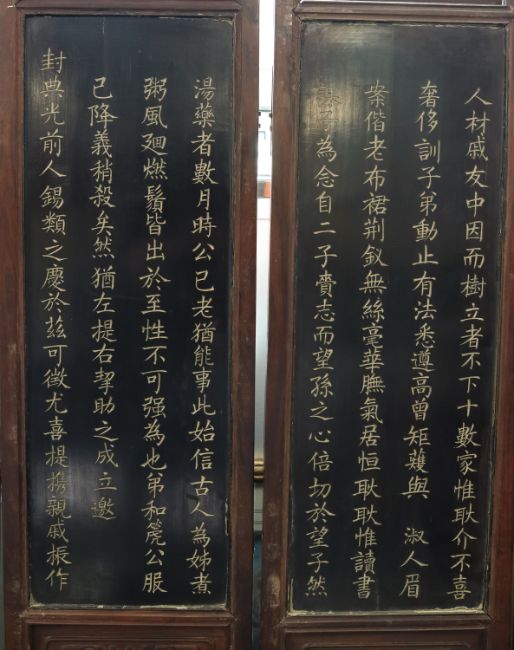 湯藥者數月時公已老猶能事此始信古人為姊煮
粥風廻燃鬚皆出於至性不可强為也弟和箎公服
已降義稍殺矣然猶左提右挈助之成立邀
封典光前人錫類之慶於茲可徵尤喜提攜親戚振作
人材戚友中因而樹立者不下十數家惟耿介不喜
奢侈訓子弟動止有法悉遵高曾矩矱與 淑人眉
案偕老布裙荆釵無絲毫華膴氣居恒耿耿惟讀書
為念自二子賫志而望孫之心倍切於望子然